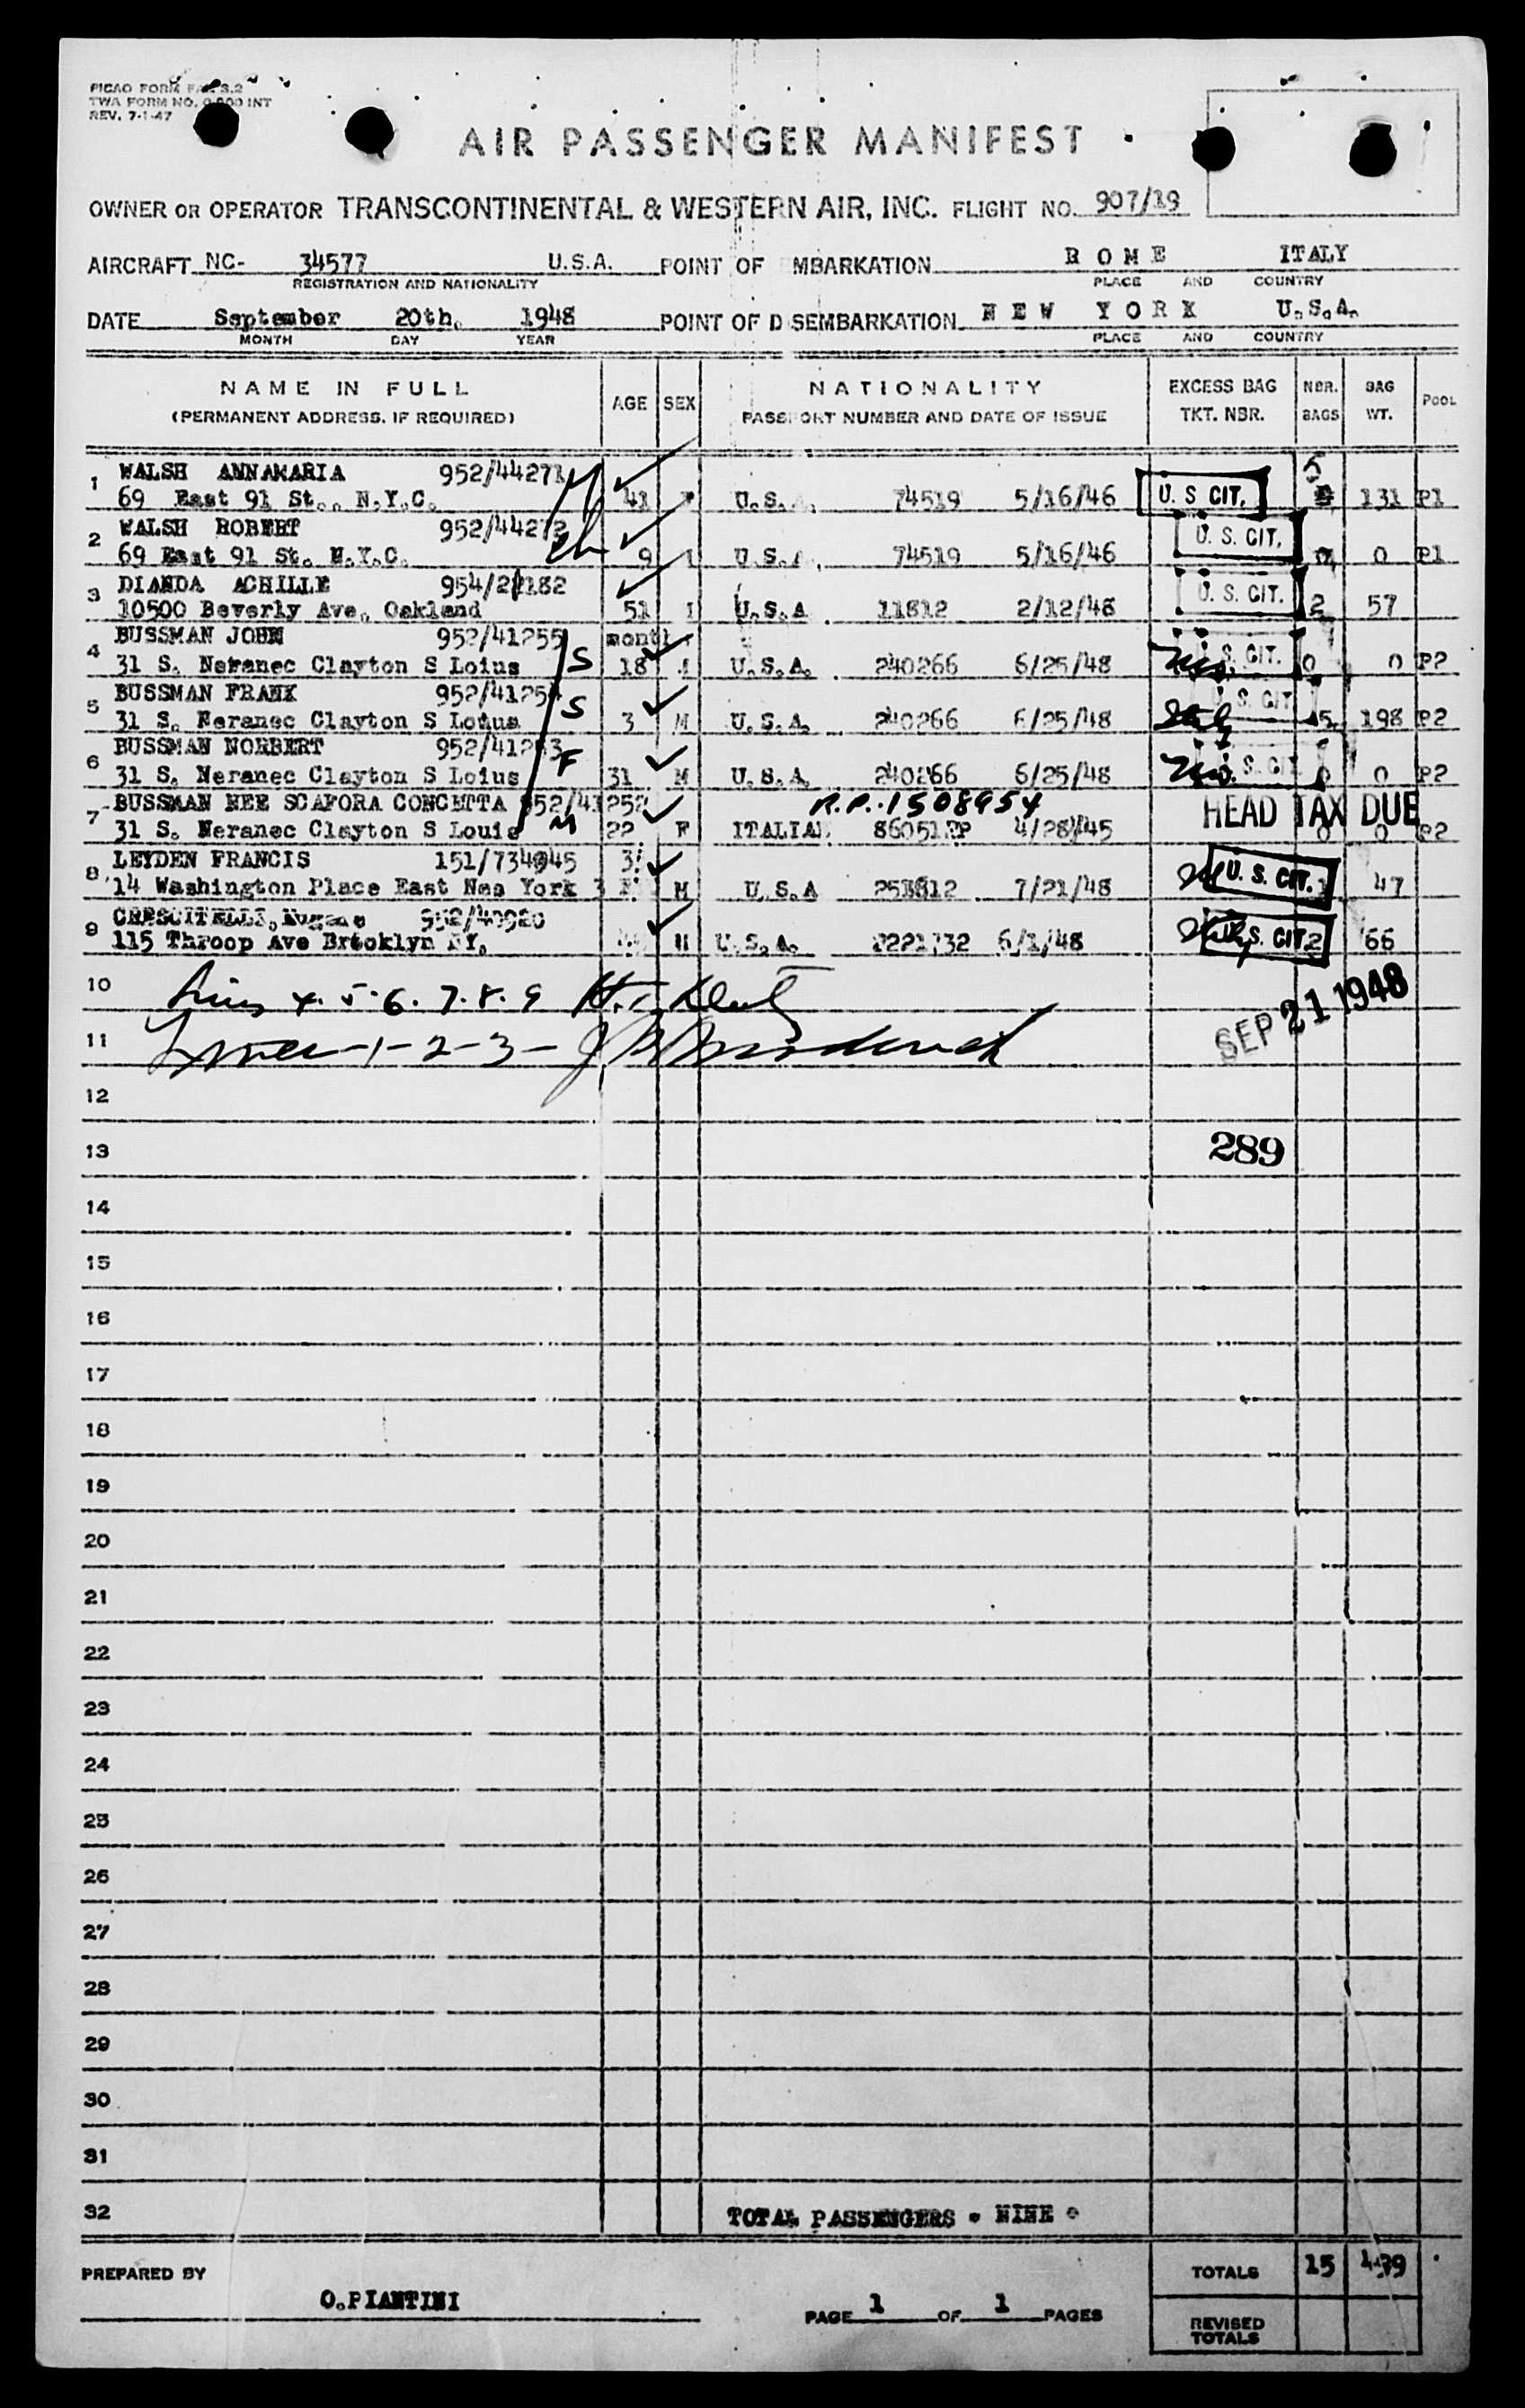 PICAO FORM FAL S.2
TWA FORM NO. INT
REV. 7-1-47
AIR PASSENGER MANIFEST
OWNER OR OPERATOR TRANSCONTINENTAL & WESTERN AIR, INC. FLIGHT NO. 907/19
AIRCRAFT NC- 34577 U.S.A. POINT OF MBARKATION ROME ITALY
REGISTRATION AND NATIONALITY PLACE AND COUNTRY
DATE September 20th. 1948 POINT OF D SEMBARKATION NEW YORK U.S.A.
MONTH DAY YEAR PLACE AND COUNTRY
NAME IN FULL AGE SEX NATIONALITY EXCESS BAG NBR. BAG POOL
(PERMANENT ADDRESS, IF REQUIRED) PASSPORT NUMBER AND DATE OF ISSUE TKT. NBR. BAGS WT.
1 WALSH ANNAMARIA 952/44271
69 East 91 St., N.Y.C. 41 F U.S. 74519 5/16/46 U. S CIT. 5 131 P1
2 WALSH ROBERT 952/44272
69 East 91 St. N.Y.C. 9 U.S. 74519 5/16/46 U. S. CIT. 0 P1
3 DIANDA ACHILLE
10500 Beverly Ave. Oakland 51 U.S.A 11812 2/12/48 U. S. CIT. 2 57
4 BUSSMAN JOHN 952/41255 month
31 S. Neranec Clayton S Loius S 18 U.S.A. 240266 6/25/48 S. CIT. 0 0 P2
5 BUSSMAN FRANK 952/41254
31 S. Neranec Clayton S Loius S 3 M U.S.A. 240266 6/25/48 S. CIT 5 198 P2
6 BUSSMAN NORBERT 952/41253
31 S. Neranec Clayton S Loius F 31 M U.S.A. 240266 6/25/48 S. CIT 0 0 P2
7 BUSSMAN NEE SCAFORA CONCETTA 952/41252 R.P. 1508954 HEAD TAX DUE
31 S. Neranec Clayton S Louis M 22 F ITALIAN 86051 PP 4/28/45 0 0 P2
8 LEYDEN FRANCIS 151/734945
14 Washington Place East New York M U.S.A 7/21/48 U. S. CIT. 47
9 CRESCITELLI, Eugene 952/40920
115 Throop Ave Brooklyn NY. M U.S.A. 6/1/48 S. CIT. 2 66
10 Lines 4. 5. 6. 7. 8. 9
11 Lines 1-2-3-
SEP 21 1948
12
13 289
14
15
16
17
18
19
20
21
22
23
24
25
26
27
28
29
30
31
32 TOTAL PASSENGERS - NINE -
PREPARED BY O.PIANTINI TOTALS 15 499
PAGE 1 OF 1 PAGES
REVISED TOTALS